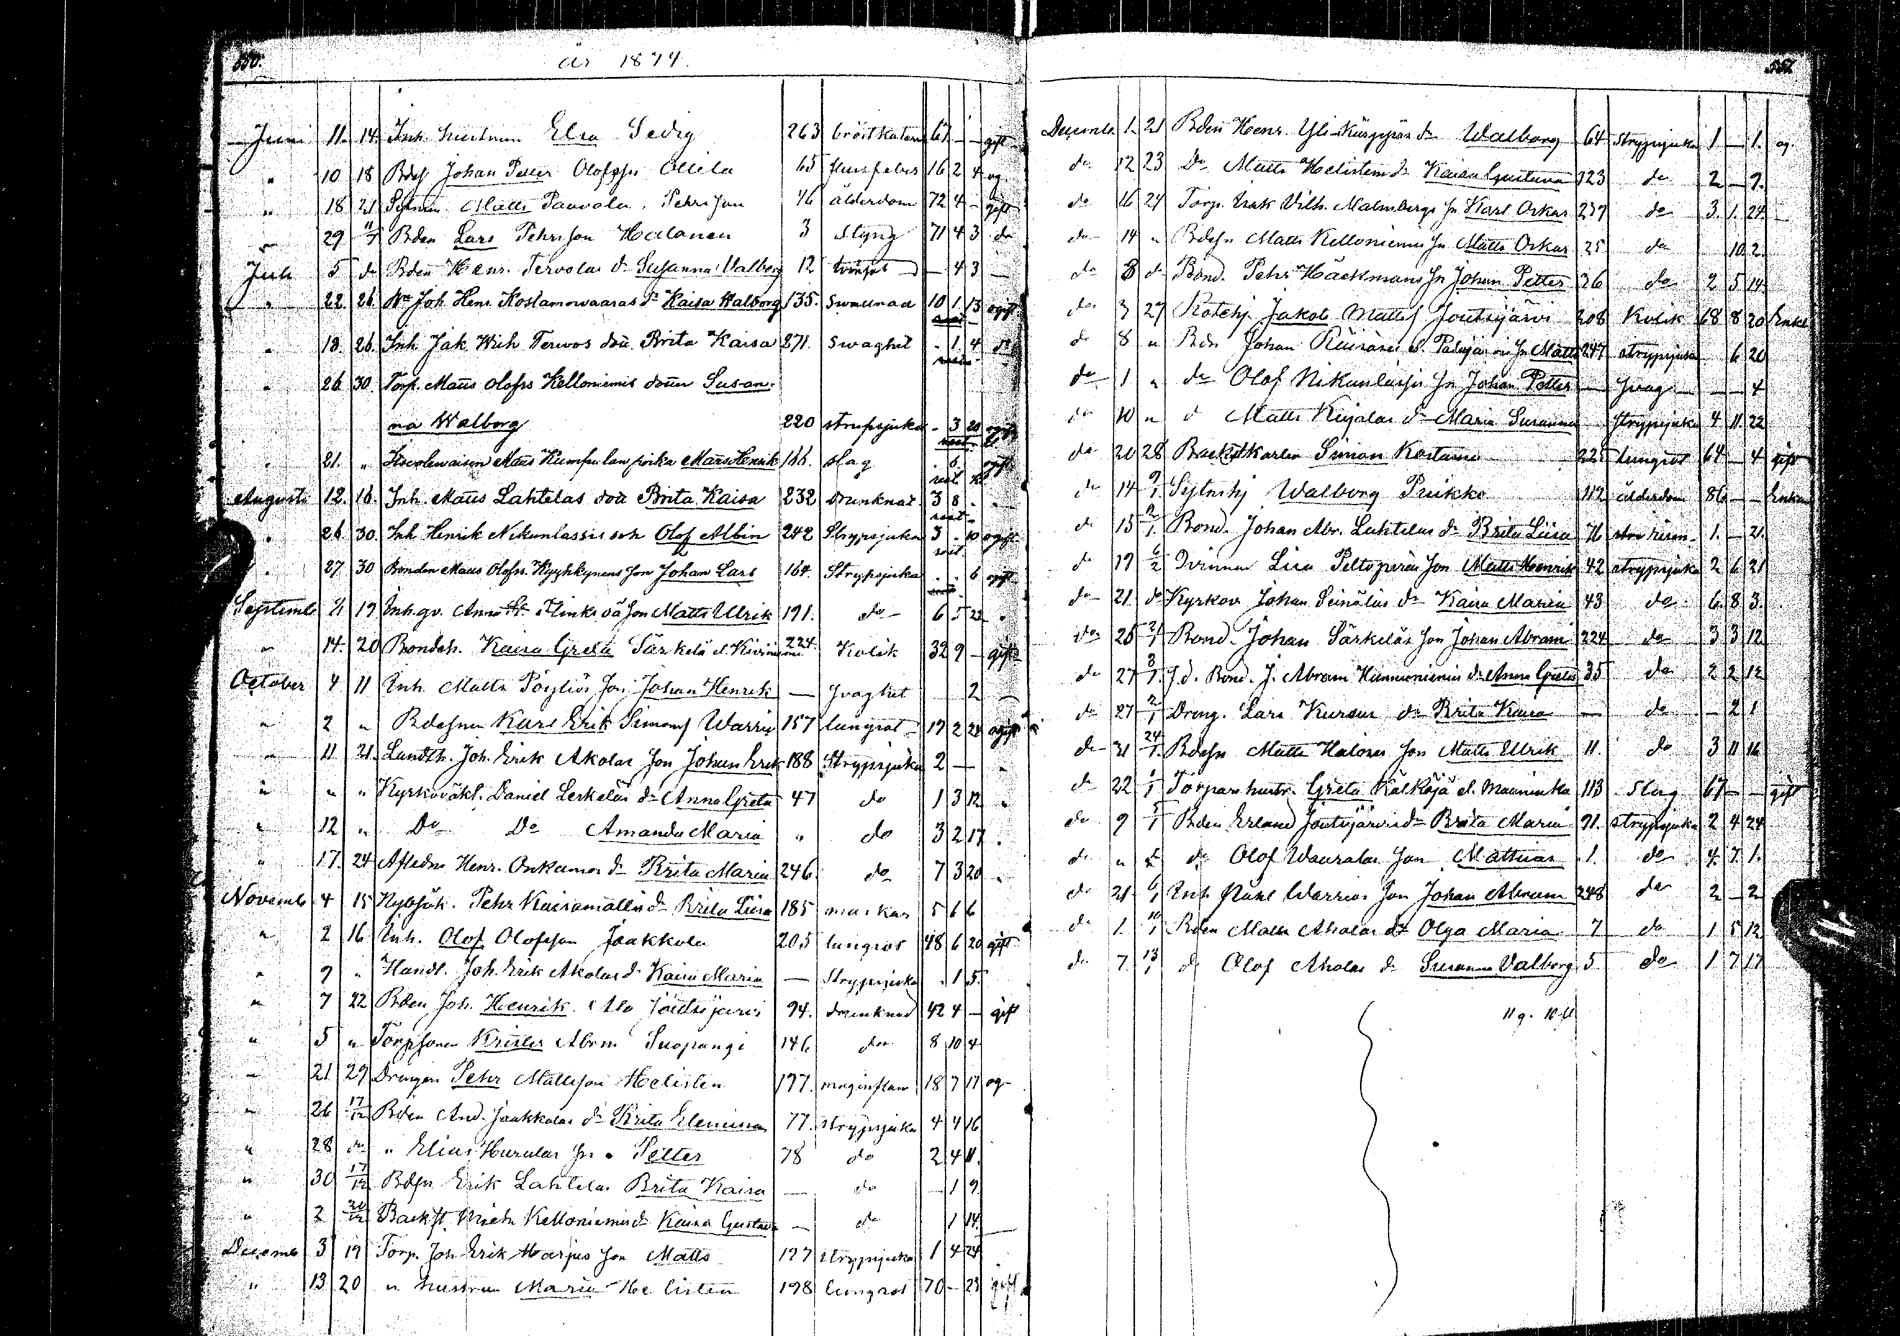 550.
år 1874.
Juni 11. 14. Inh. hustrun Elsa Sedig 263 bröstkatarr 61 — — gift
" 10 18 Bdes Johan Petter Olofsson Ollila 65 16 2 4 og.
" 18 21 Sytnin Matts Paavola Pehrsson 46 ålderdom 72 4 – gift
" 29 Bden Lars Pehrsson Halonen 3 Styng 71 4 3 do
Juli 5 do Bden Henr. Tervolas dr Susanna Walborg 12 — 4 3 —
" 22 26 Joh. Henr. Kostamovaaras dr Kaisa Walborg 135. Swullnad 10 1 13 ogift
" 13. 26. Inh. Jak. Mich Tervos dotr. Brita Kaisa 271. Swaghet . 1 4 do
" 26 30. Torp. Matts Olofss Kelloniemis dotter Susan-
na Walborg 220 strupsjuka . 3 20 ogift
" 21. " Matts Henrik 166. slag . 6
Augusti 12. 16. Inh. Matts Lahtelas dotr Brita Kaisa 232 Drunknat 3 8 .
" 26 30. Inh. Henrik Nikunlassis son Olof Albin 242 Strypsjuka 3 . 10 ogift
" 27 30 Bonden Matts Olofss. Kyyhkynens son Johan Lars 164. Strypsjuka . . 6 ogift
Septemb 19 Inh. Matts Ulrik 191. do 6 5 22 .
" 14. 20 Bondeh. Kaisa Greta Särkelä 224 Kolik 32 9 – gift
October 4 11 Inh. Matts Pöyliös son Johan Henrik — svaghet 2 —
" 2 " Bdesonen Karl Erik Simons Warrio 157 lungsot 19 2 28 ogift
" 11 21. Landth. Joh. Erik Akolas son Johan Erik 188 Strypsjuka 2 — .
" " " Kyrkoväkt. Daniel Lerkeläs dr Anna Greta 47 do 1 3 12 .
" 12 " Do Do Amanda Maria " do 3 2 17 .
" 17. 24 Henr. Onkamos dr Brita Maria 246 do 7 3 20 .
Novemb 4 15 Nybygg. Pehr Kairamattis dr Brita Liisa 185 maskar 5 6 6
" 2 16 Inh. Olof Olofsson Jaakkola 205 lungsot 48 6 20 gift
" 9 " Handl. Joh. Erik Akolas dr Kaisa Maria — Strypsjuka . 1 5.
" 7 22 Bden Joh. Henrik Joutsijärvi 94. drunknad 42 4 — gift
" 5 " Torpsonen Krister Abrm Suopangi 146 do 8 10 4
" 21 29 Drängen Petr Mattsson Helisten 177. maginflam 18 7 17 og
" 26 17/12 Bden And. Jaakkolas dr Brita Elemina 77. strypsjuka 4 4 16
" 28 do " Elias Hurulas sn Petter 78 do 2 4 11.
" 30 17/12 Bdsn Erik Lahtelas Brita Kaisa — do — 1 9
" 2 20/12 Backst. Kelloniemis dr Kaisa Gustava — do 1 14
Decemb 3 19 Torp. Joh Erik Harjus son Matts 127 strypsjuka 1 4 24
" 13 20 " hustrun Maria Helisten 198 lungsot 70 – 23 gift
551.
December 1. 21 Bden Henr. Yli-Kurppas dr Walborg 64 Strypsjuka 1 — 1. og.
do 12 23 Do Matts Helistens dr Kaisa Gustava 123 do 2 — 9.
do 16 24 Torp. Erik Vilh. Malmbergs sn Karl Oskar 237 do 3. 1. 24. —
do 14 " Bdesn Matts Kelloniemis sn Matts Oskar 25 do 10 2.
do 8 do Bond. Pehr Häckmans sn Johan Petter 36 do 2 5 14.
do 3 27 Rotehj Jakob Matts Joutsijärvi 208 Kolik 68 8 20 Enkl
do 8 " Bdn Johan sn Matts 247 strypsjuka 6 20
do 1 " do Olof Nikunlassis sn Johan Petter — svag — — 4
do 10 " d Matts Kujalas dr Maria Susanna Strypsjuka 4 11 22
do 20 28 Backstkarlen Simon Kostamo 225 lungsot 64 — 4 gift
do 14 9/1 Sytnhj Walborg Puikko 112 ålderdom 86 — — Enka
do 15 2/1 Bond. Johan Abr. Lahtelas dr Brita Liisa 76 1. — 21.
do 19 6/2 Qvinnan Lisa Peltoperäs son Matts Henrik 42 strypsjuka 2 6 21
do 21 do Kyrkov. Johan Seinälus dr Kaisa Maria 43 do 6 8 3.
do 25 2/1 Bond. Johan Särkeläs son Johan Abram 224 do 3 3 12
do 27 3/1 f.d. Bond. J. Abram Hunnoniemis dr Anna Greta 35 do 2 2 12
do 27 2/1 Dreng. Lars Kursus dr Brita Kaisa — do — 2 1
do 31 24/1 Bdesn Matts Halones son Matts Ulrik 11. do 3 11 16
do 22 1/1 Torpare hustr. Greta Kälkäjä el. Mauninka 113 Slag 67 — — gift
do 9 5/1 Bden Erland Joutsijärvis dr Brita Maria 91. strypsjuka 2 4 24
do " do Olof Waaralas son Mattias 1. do 4 7 1.
do 21 6/1 Inh. Påhl Warrios son Johan Abram 248 do 2 – 2
do 1. 10/1 Bden Matts Aholas dr Olga Maria 7 do 1 5 12
do 7. 13/1 d Olof Aholas dr Susanna Valborg 5 do 1 7 17
11 g. 10